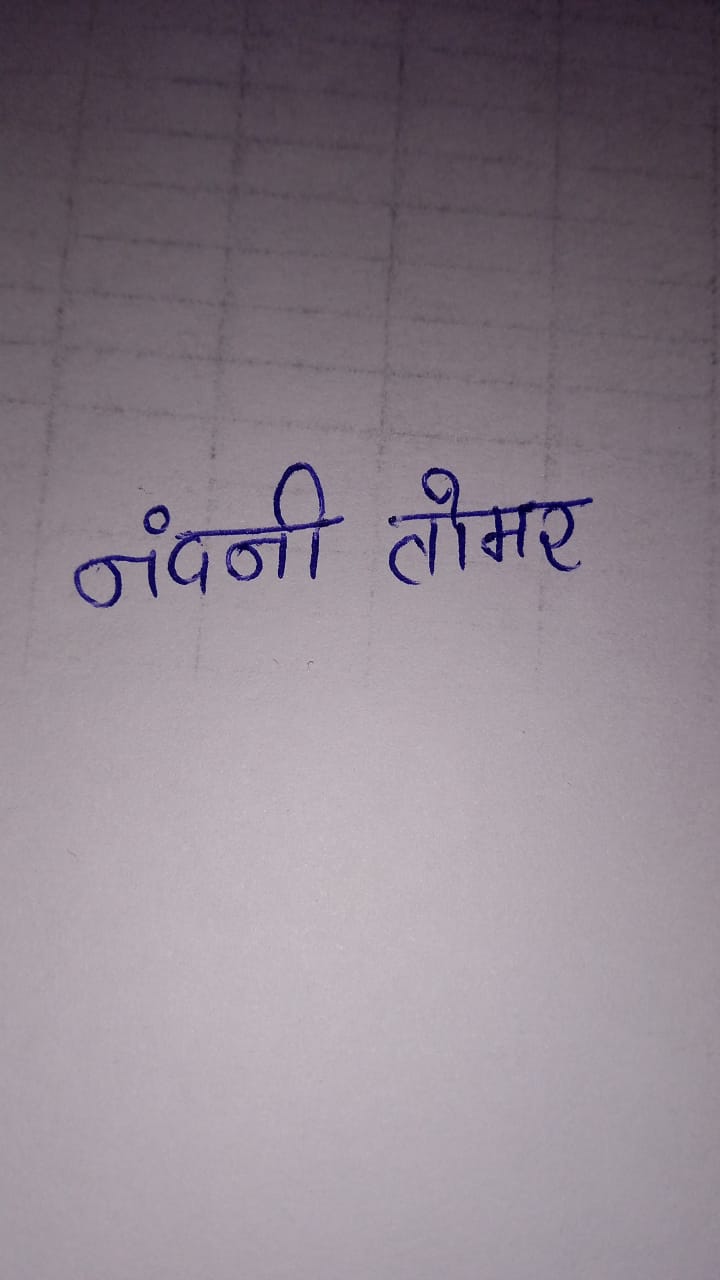 नंदनी तोमर